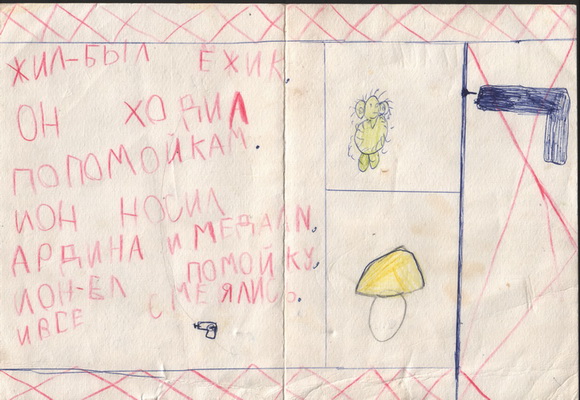 ЖИЛ-БЫЛ ЁЖИК.
ОН ХОДИЛ
ПОПОМОЙКАМ.
ИОН НОСИЛ
АРДИНА И МЕДАЛИ.
ИОН-ЕЛ ПОМОЙКУ.
ИВСЕ СМЕЯЛИСЬ.